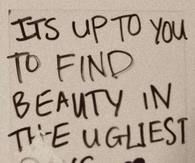 ITS UP TO YOU
TO FIND
BEAUTY IN
THE UGLIEST